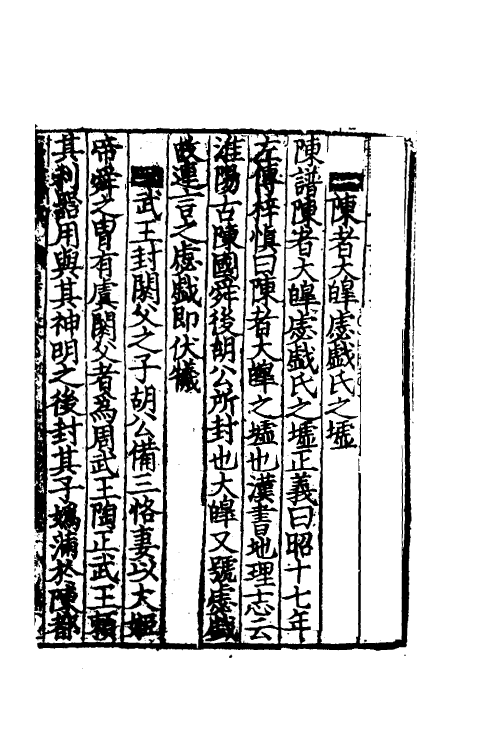 陳者大皥虙戲氏之墟
陳譜陳者大皥虙戲氏之墟正義曰昭十七年
左傳梓慎曰陳者大皥之墟也漢書地理志云
淮陽古陳國舜後胡公所封也大皥又號虙戲
故連言之虙戲即伏犧
武王封閼父之子胡公備三恪妻以大姬
帝舜之胄有虞閼父者為周武王陶正武王賴
其利器用與其神明之後封其子媯滿於陳都